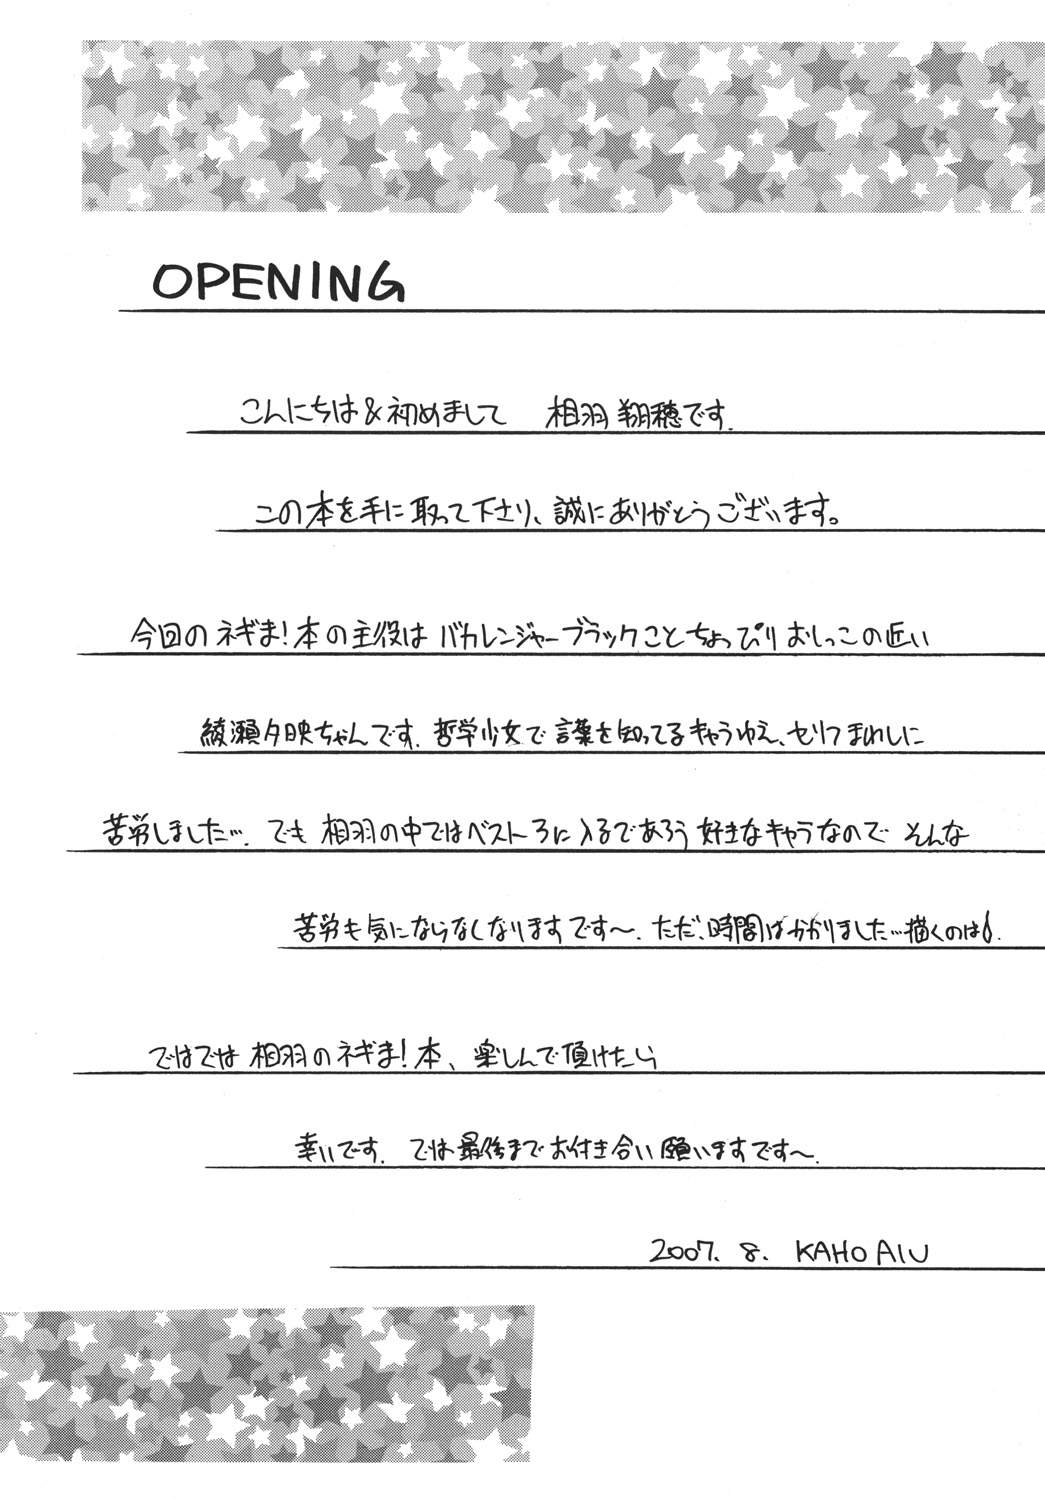 OPENING
こんにちは&初めまして 相羽 翔穂です.
この本を手に取って下さり、誠にありがとうございます。
今回のネギま!本の主役は バカレンジャーブラックことちょっぴり おしっこの近い
綾瀬夕映ちゃんです. 哲学少女で言葉を知ってるキャラゆえ、セリフまわしに
苦労しました…. でも 相羽の中ではベスト3に入るであろう 好きなキャラなので そんな
苦労も気にならなくなりますです〜. ただ、時間はかかりました…描くのは.
ではでは 相羽のネギま!本、楽しんで頂けたら
幸いです. では最後までお付き合い願いますです〜.
2007. 8. KAHO AIU